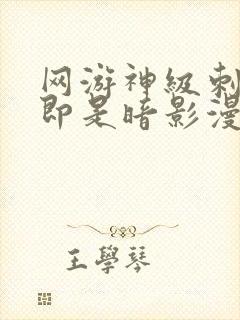 网游神级刺
即是暗影漫
王學琴